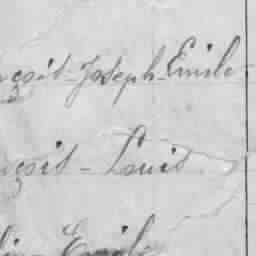 nçois-Joseph-Emile
nçois-Louis
Emile